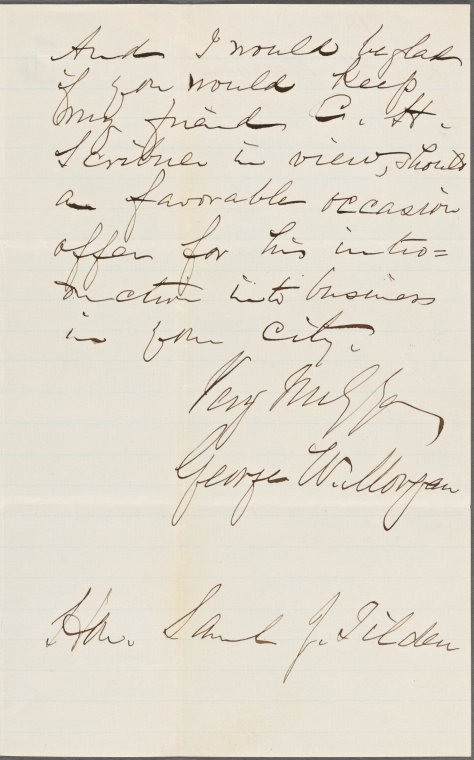 And I would be glad
if you would keep
my friend C. H.
Scribner in view, should
a favorable occasion
offer for his intro=
duction into business
in your city.
Very truly yrs,
George W. Morgan
Hon. Saml J. Tilden